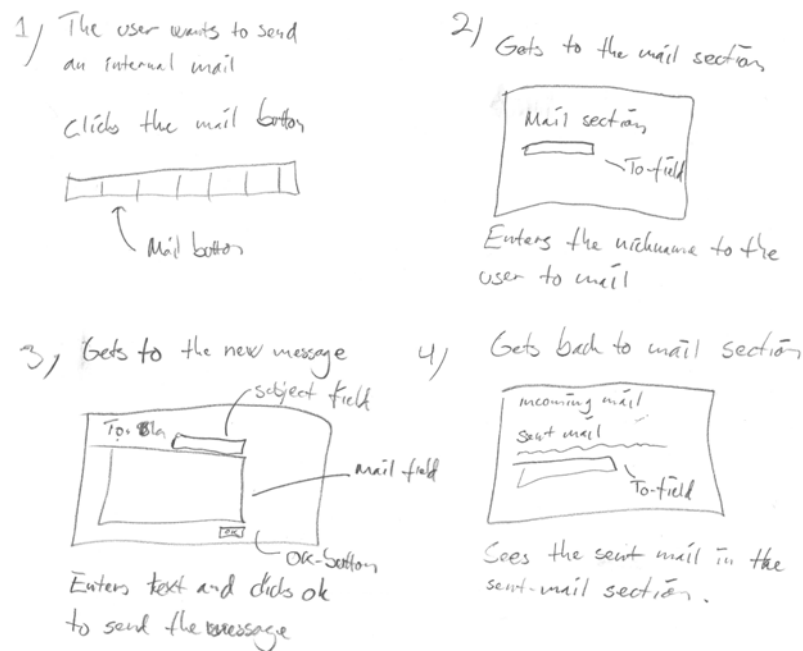 1) The user wants to send
an internal mail
Clicks the mail button
Mail button
2) Gets to the mail section
Mail section
To-field
Enters the nickname to the
user to mail
3) Gets to the new message
subject field
To: Bla
mail field
OK
OK-button
Enters text and clicks ok
to send the message
4) Gets back to mail section
incoming mail
sent mail
To-field
Sees the sent mail in the
sent-mail section.